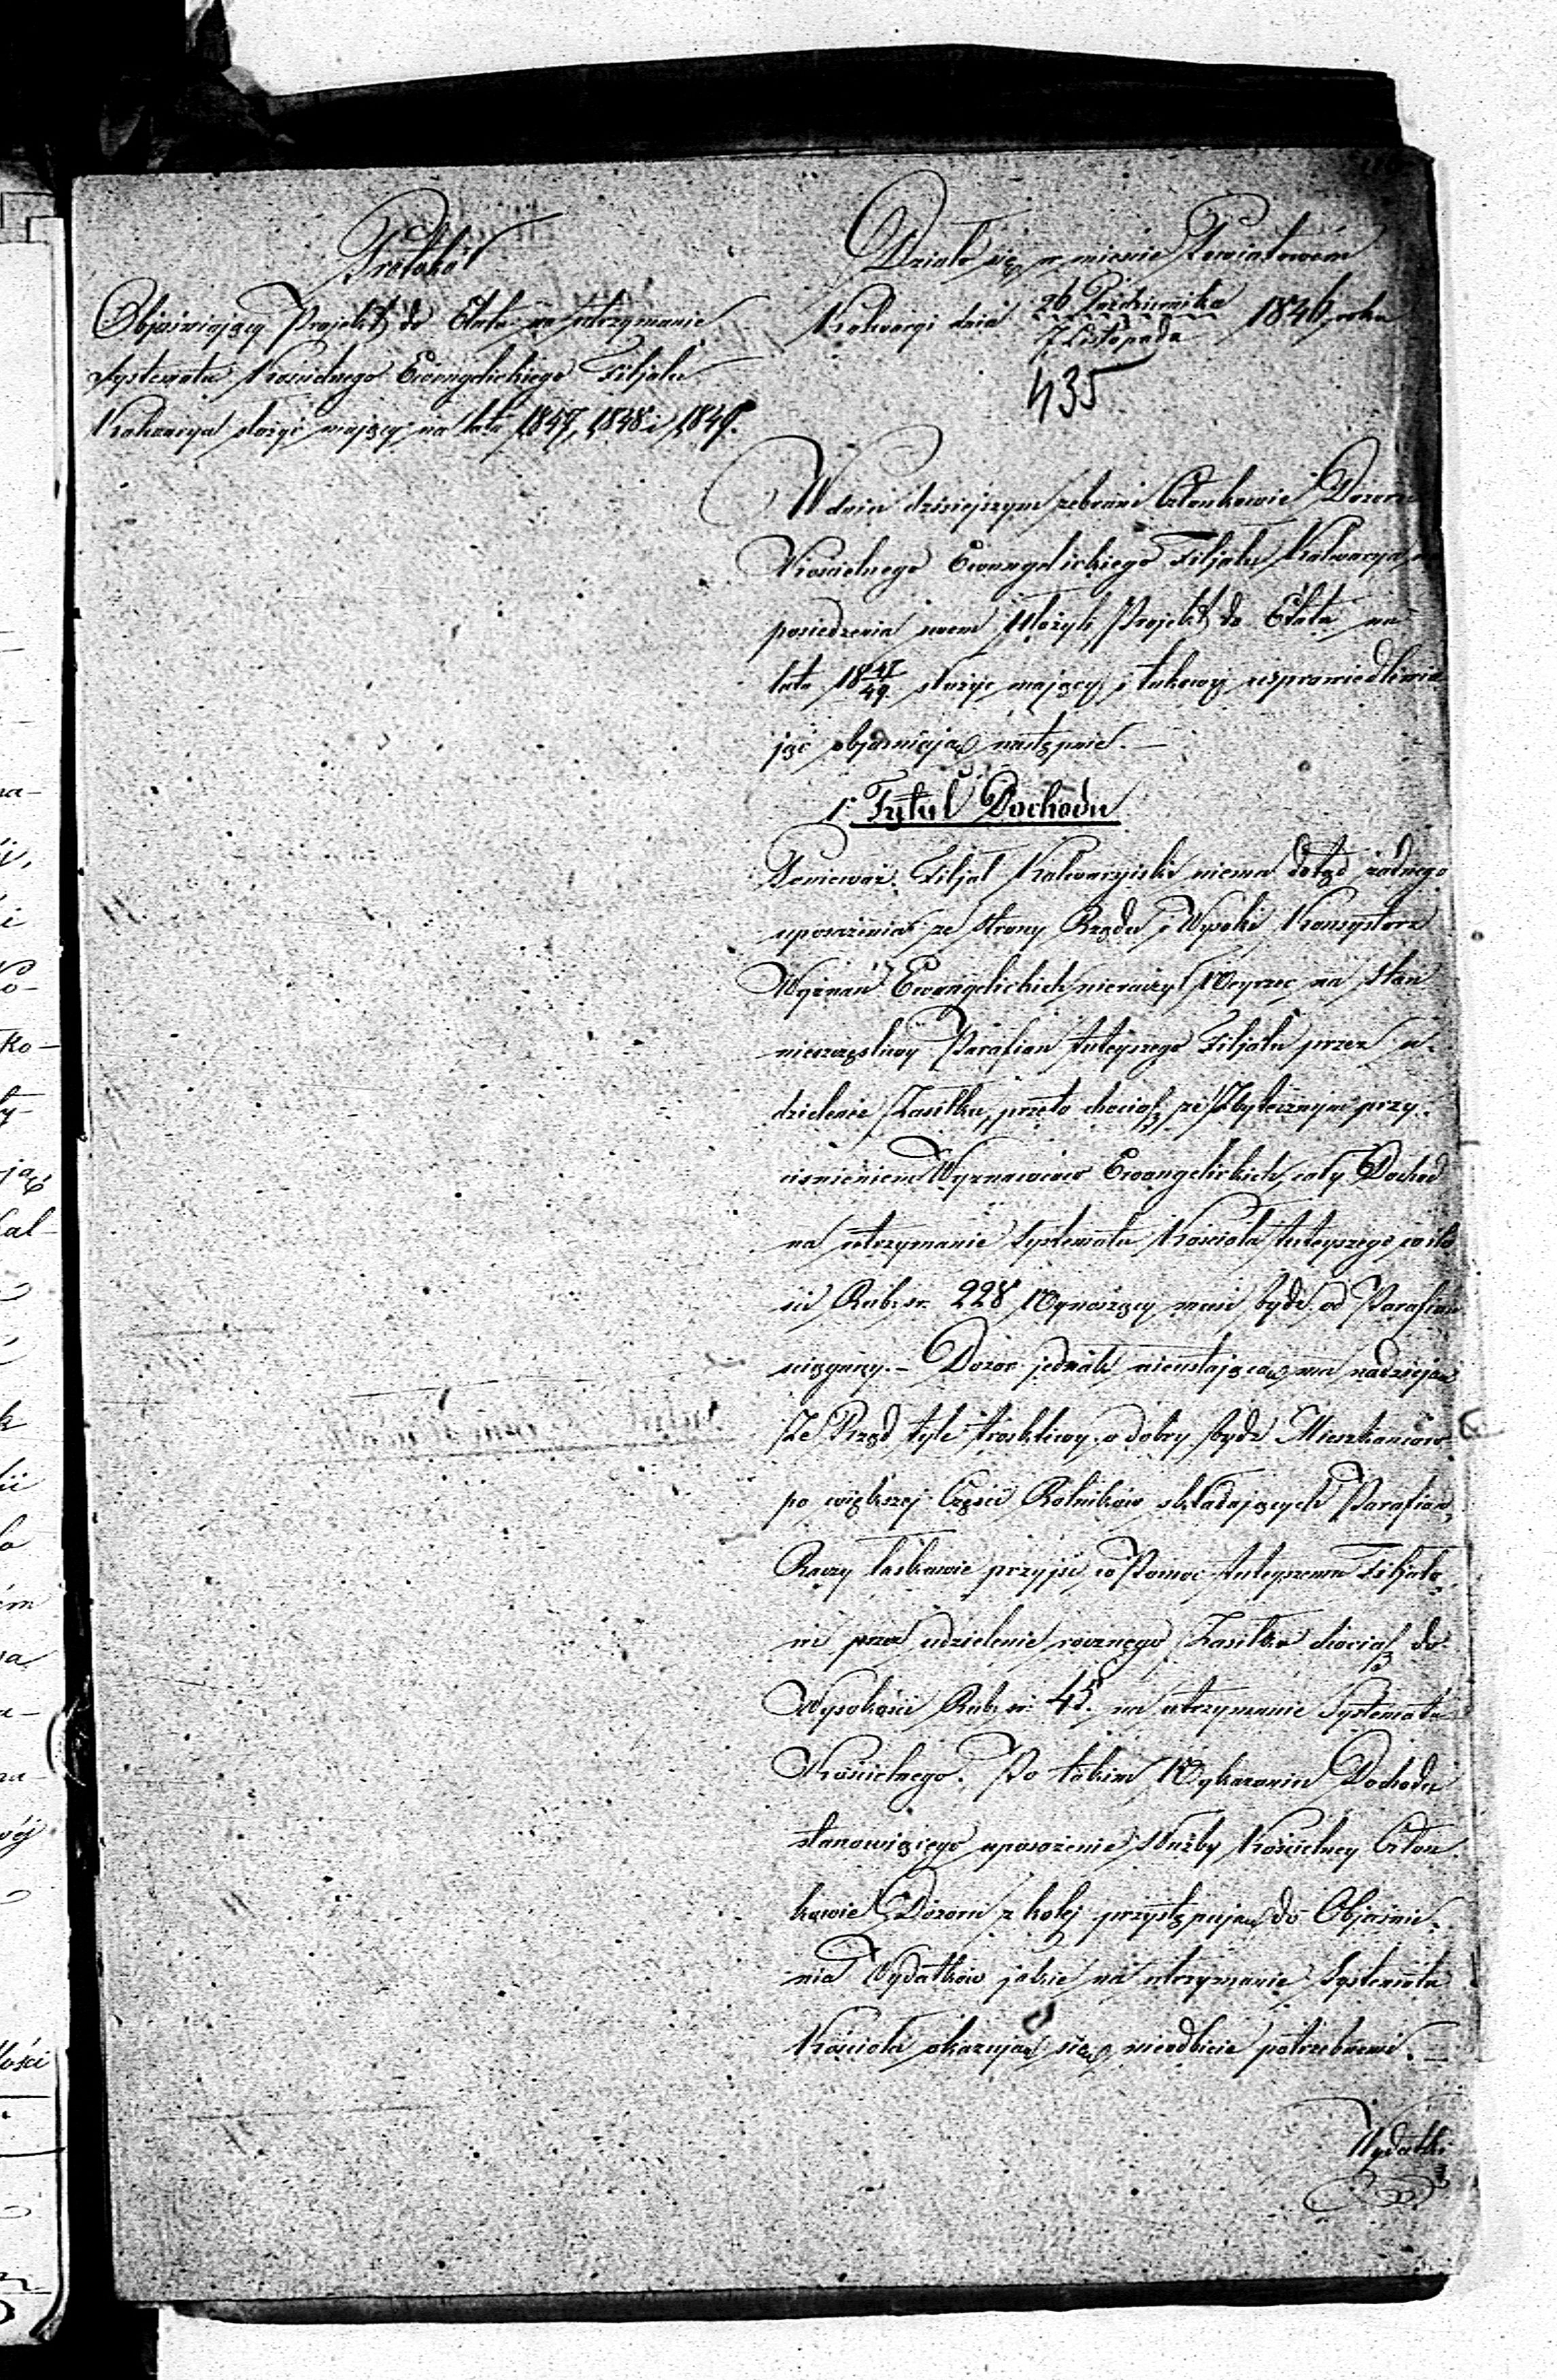 Protokół
Objaśniający Projekt do Etatu na utrzymanie
Systematu Kościelnego Ewangelickiego Filjału
Kalwarya służyć mający na lata 1847, 1848 i 1849.
Działo się w mieście Powiatowem
Kalwaryi dnia 26 Października / 7 Listopada 1846 roku
435
W dniu dzisiejszym zebrani Członkowie Dozoru
Kościelnego Ewangelickiego Filjału Kalwarya na
posiedzeniu swem Ułożyli Projekt do Etatu na
lata 1847/49 służyć mający i takowy usprawiedliwia
jąc objasniają następnie. —
1. Tytuł Dochodu
Ponieważ Filjał Kalwaryiski niema dotąd żadnego
uposażenia ze strony Rządu i Wysoki Konsystorz
Wyznań Ewangelickich nieraczył Weyrzeć na stan
nieszczęsliwy Parafian tuteyszego Filjału przez u-
dzielenie Zasiłku, przeto chociaß ze Zbytecznym przy-
cisnieniem Wyznawców Ewangelickich, cały Dochód
na utrzymanie Systematu Kościoła tuteyszego w ilo
sci Rub. sr. 228 Wynoszący musi bydź od Parafian
sciągnięty. – Dozór jednak nieustającą ma nadzieją
Ze Rząd tyle troskliwy o dobry bydź Mieszkańców
po większej Części Rolników składających Parafian,
Raczy łaskawie przyjść w Pomoc tuteyszemu Filjało
wi przez udzielenie rocznego Zasiłku chociaß do
Wysokości Rub. sr. 45. na utrzymanie Systematu
Kościelnego. Po takim Wykazaniu Dochodu
stanowiącego uposażenie Służby Kościelney Człon
kowie Dozoru z kolej przystępują do Objaśnie-
nia Wydatków jakie na utrzymanie Systematu
Kościoła okazują się nieodbicie potrzebnemi. —
Wydatki